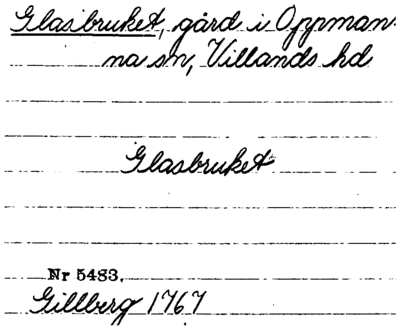 Glasbruket, gård i Oppman-
na sn, Villands hd
Glasbruket
Nr 5483.
Gillberg 1767